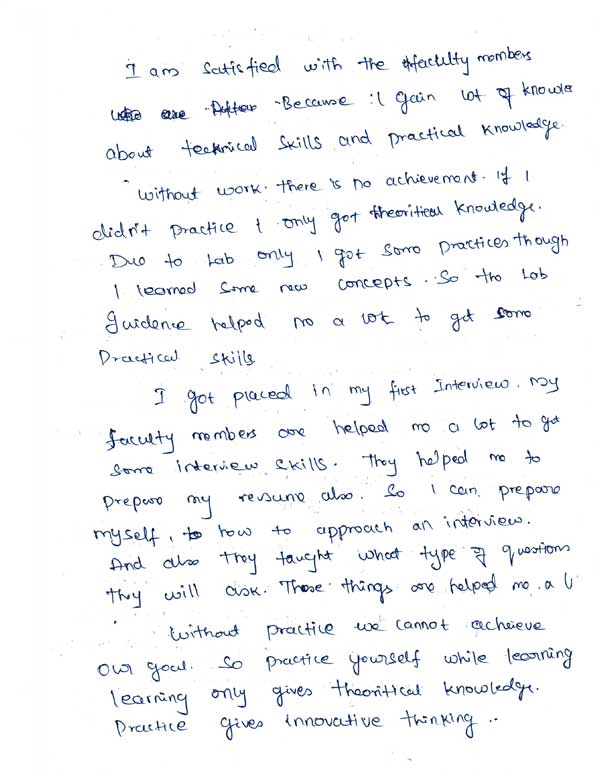 I am satisfied with the faculty members
Because I gain lot of knowle
about technical skills and practical knowledge.
without work. there is no achievement. If I
didn't practice I only got theoritical knowledge.
Due to Lab only I got some practices though
I learned some new concepts. So the Lab
Guidence helped me a lot to get some
Practical skills
I got placed in my first Interview. My
faculty members are helped me a lot to get
some interview skills. They helped me to
prepare my resume also. So I can prepare
myself, to how to approach an interview.
And also they taught what type of questions
they will ask. These things are helped me a l
Without practice we cannot acheieve
our goal. So practice yourself while learning
learning only gives theoritical knowledge.
Practice gives innovative thinking ..